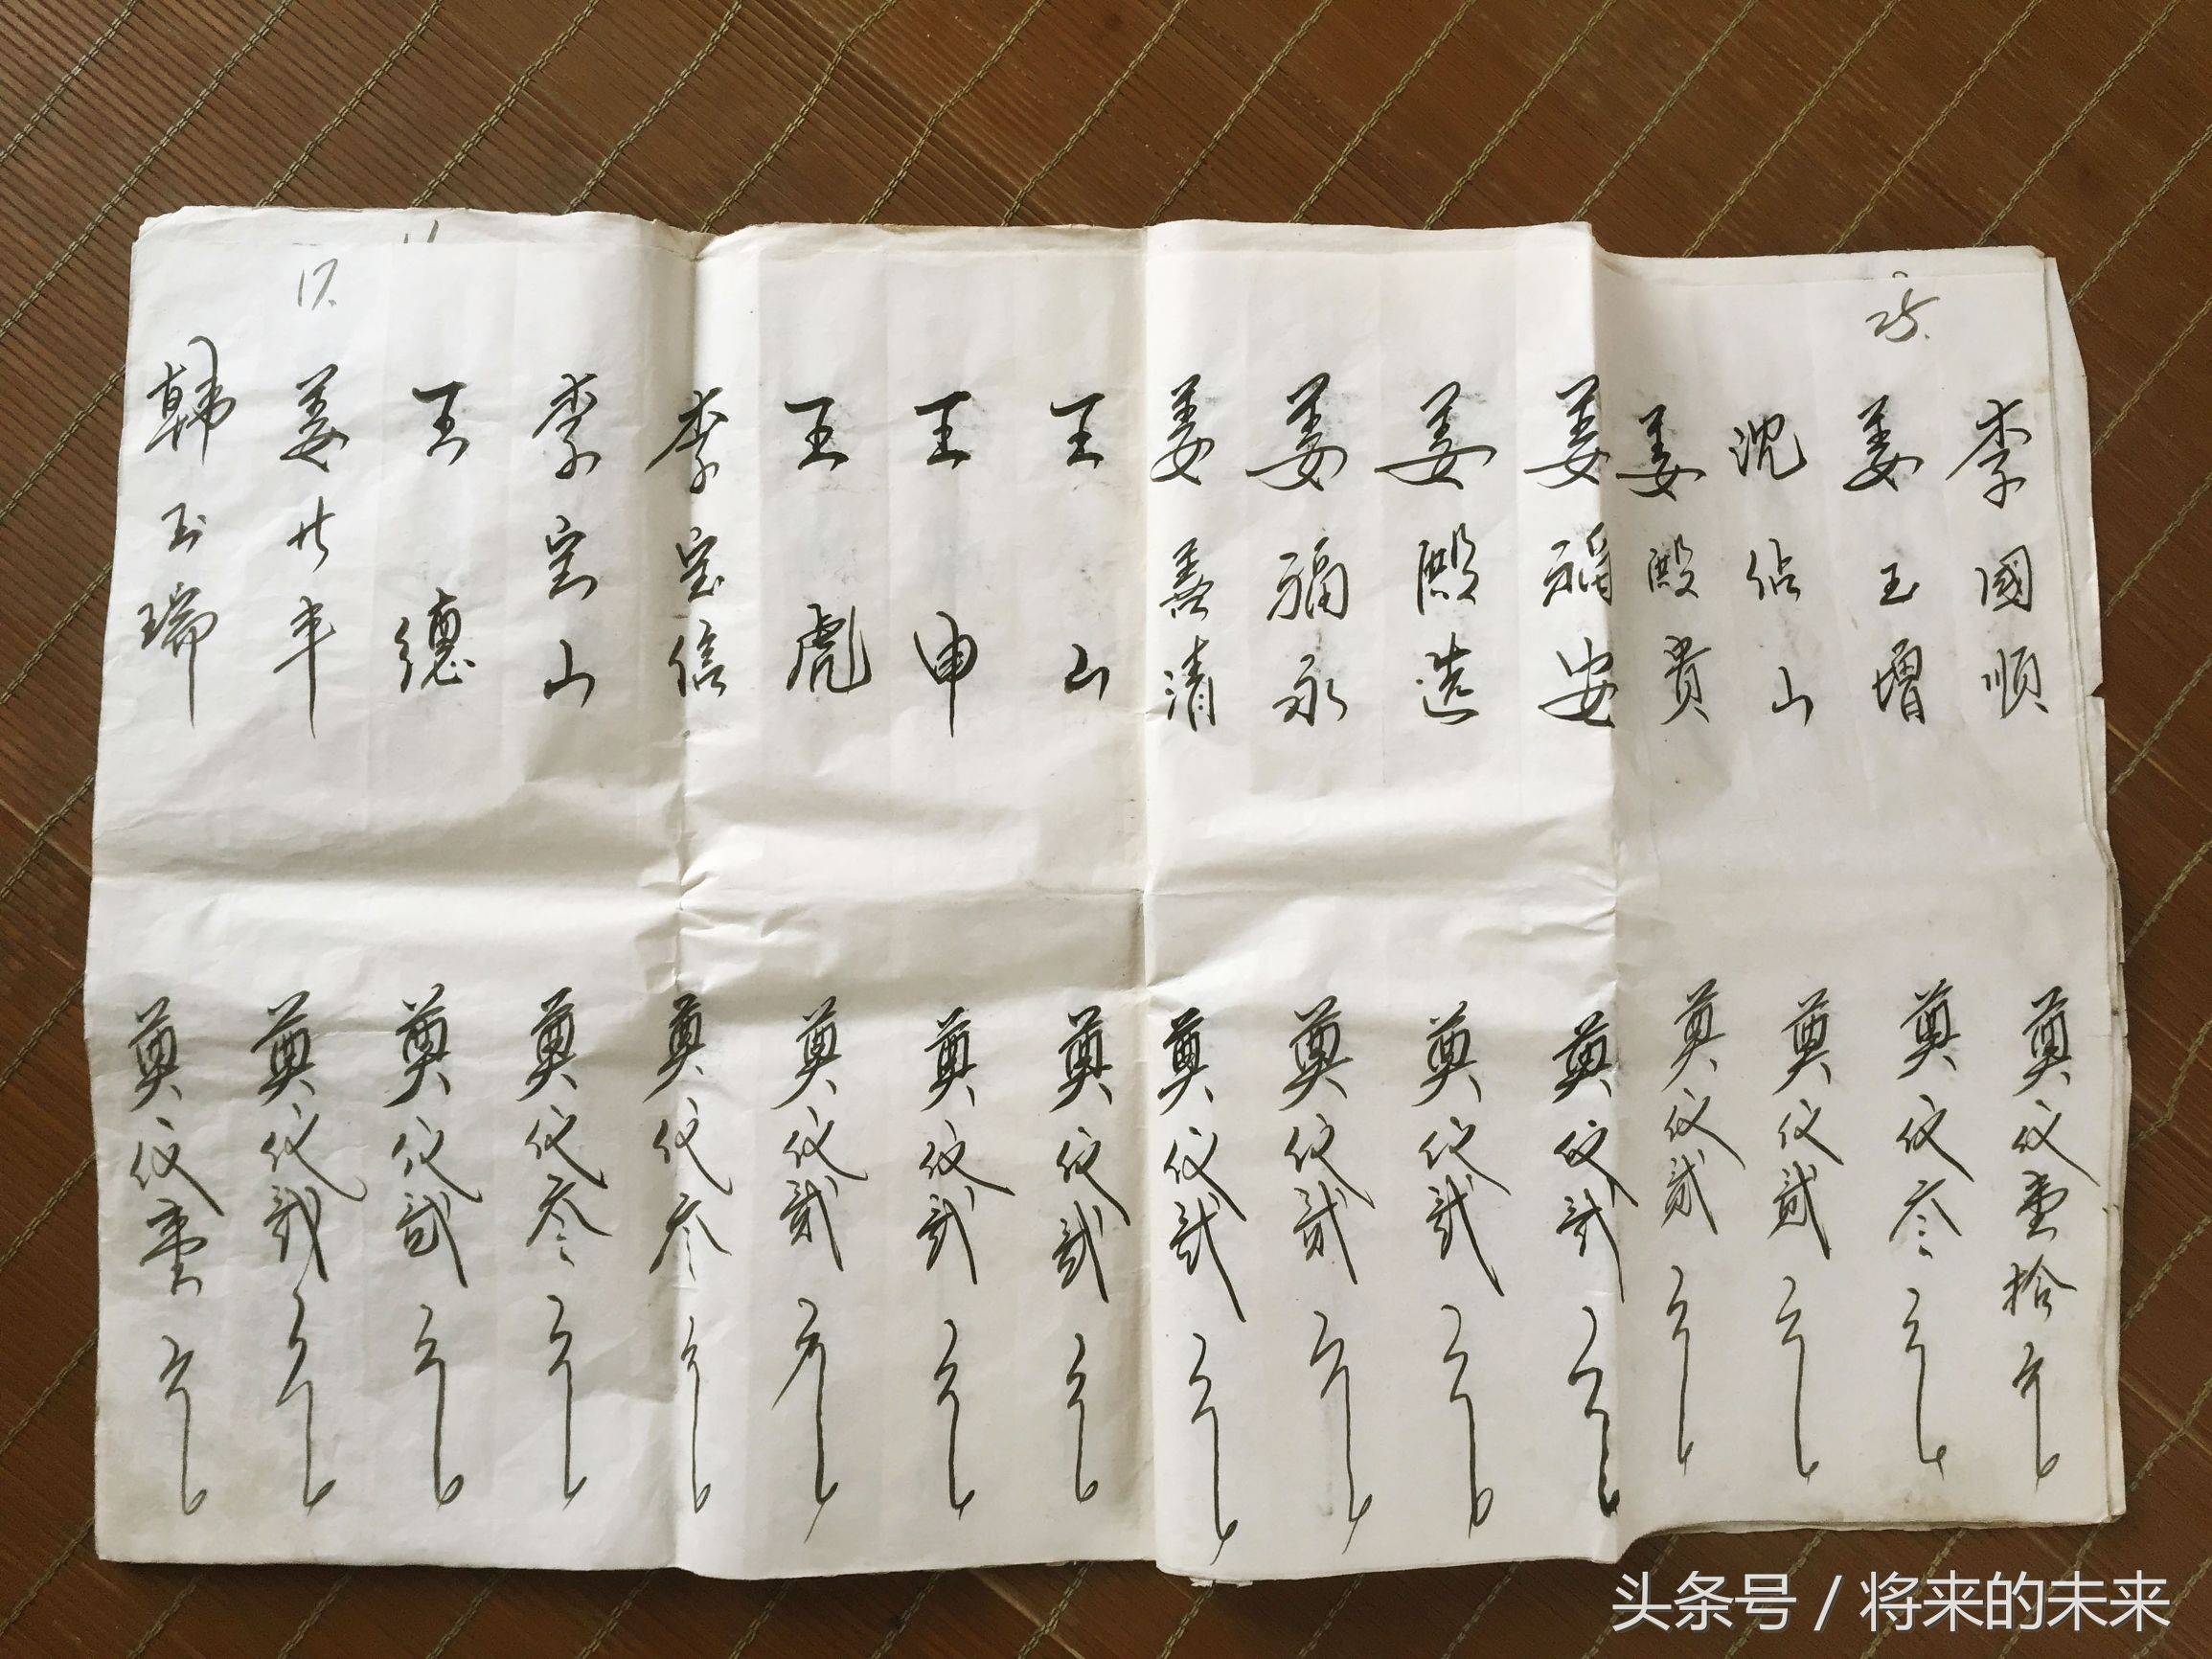 25.
李國順 奠仪壹拾元
姜玉增 奠仪叁元
沈佔山 奠仪貳元
姜殿贵 奠仪貳元
姜福安 奠仪貳元
姜殿选 奠仪貳元
姜福永 奠仪貳元
姜善清 奠仪貳元
王山 奠仪貳元
王申 奠仪貳元
王虎 奠仪貳元
李宝信 奠仪叁元
李宝山 奠仪叁元
王德 奠仪貳元
17.
姜 年 奠仪貳元
韩玉瑞 奠仪壹元
头条号 / 将来的未来